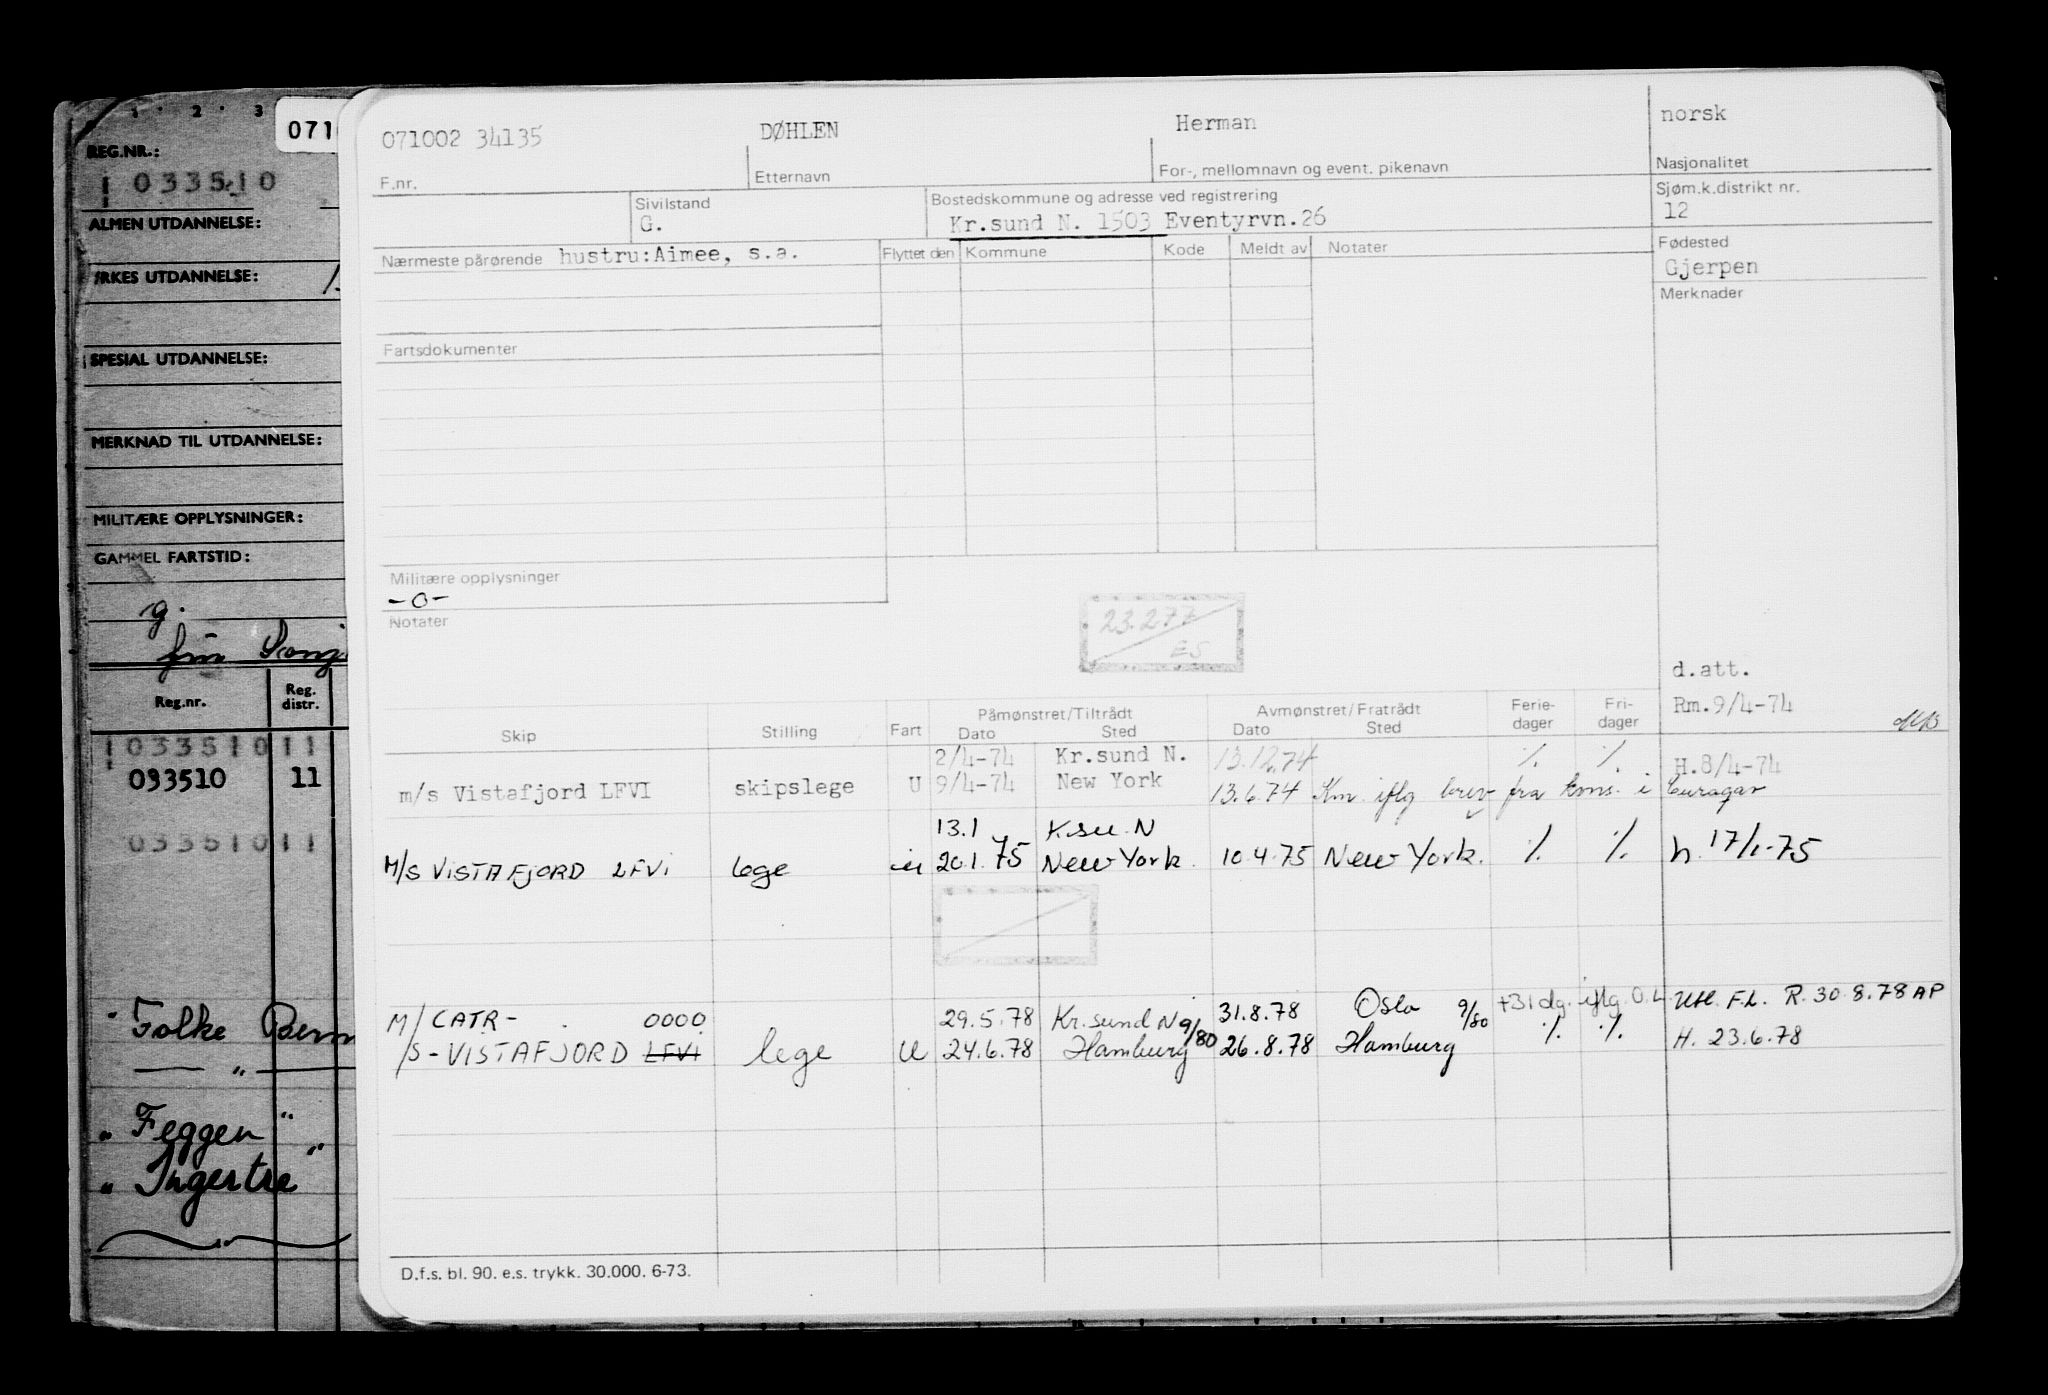 1 2 3
071
REG.NR.:
033510
ALMEN UTDANNELSE:
YRKES UTDANNELSE:
SPESIAL UTDANNELSE:
MERKNAD TIL UTDANNELSE:
MILITÆRE OPPLYSNINGER:
GAMMEL FARTSTID:
g.
Reg.nr. Reg. distr.
033510 11
093510 11
033510 11
Folke Bern
— " —
" Feggen "
" Ingertre "
071002 34135 DØHLEN Herman norsk
F.nr. Etternavn For-, mellomnavn og event. pikenavn Nasjonalitet
Sivilstand Bostedskommune og adresse ved registrering Sjøm.k.distrikt nr.
G. Kr.sund N. 1503 Eventyrvn.26 12
Nærmeste pårørende hustru:Aimee, s.a. Flyttet den Kommune Kode Meldt av Notater Fødested
Gjerpen
Merknader
Fartsdokumenter
Militære opplysninger
-0-
Notater
23.277
ES
d.att.
Rm.9/4-74
Påmønstret/Tiltrådt Avmønstret/Fratrådt Ferie- Fri-
Skip Stilling Fart Dato Sted Dato Sted dager dager
2/4-74 Kr.sund N. 13.12.74 ·/. ·/. H.8/4-74
m/s Vistafjord LFVI skipslege U 9/4-74 New York 13.6.74 Km. iflg brev fra kons. i Curaçao
13.1 K.su. N
M/S VISTAFJORD LFVI lege u 20.1.75 New York. 10.4.75 New York. ·/. ·/. h. 17/1-75
M/CATR- 0000 29.5.78 Kr.sund N 9/80 31.8.78 Oslo 9/80 +31 dg. iflg. O.L. Utl. F.L. R. 30.8.78 AP
/S-VISTAFJORD LFVI lege U 24.6.78 Hamburg 26.8.78 Hamburg ·/. ·/. H. 23.6.78
D.f.s. bl. 90. e.s. trykk. 30.000. 6-73.